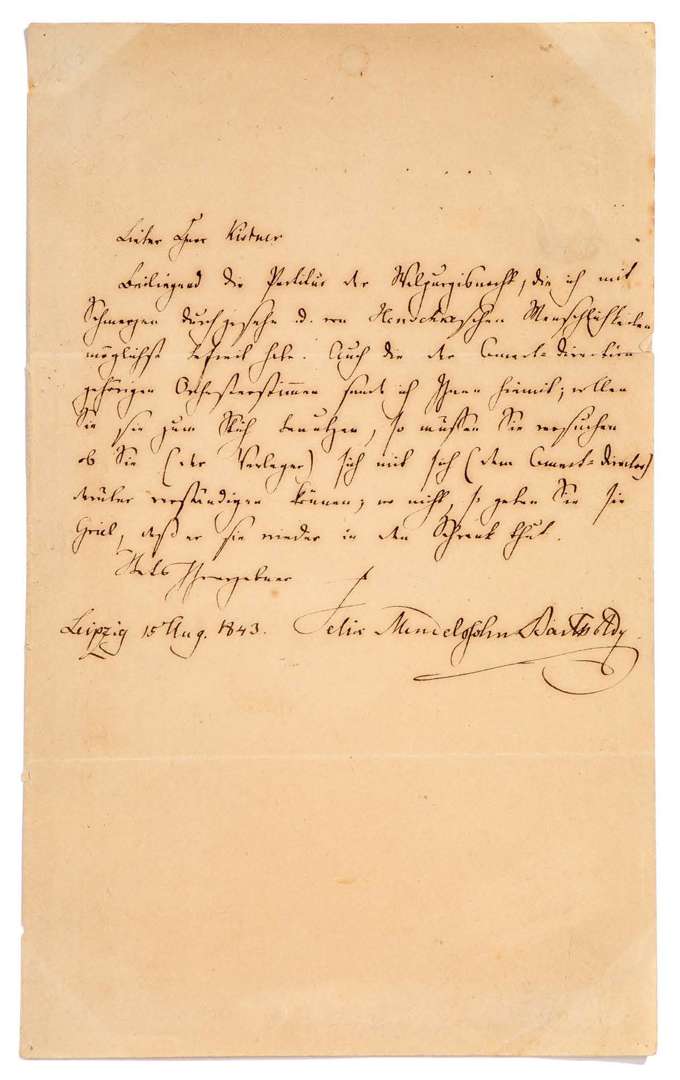 Lieber Herr Kistner
Beiliegend die Partitur der Walpurgisnacht, die ich mit
Schmerzen durchgesehn u. von Menschlichkeiten
möglichst befreit habe. Auch die der Concert-direction
gehörigen Orchesterstimmen sende ich Ihnen hiemit; wollen
Sie sie zum Stich benutzen, so müssen Sie versuchen
ob Sie (der Verleger) sich mit sich (dem Concert-Director)
darüber verständigen können; wo nicht, so geben Sie sie
daß er sie wieder in den Schrank thut.
Stets Ihr ergebner
Leipzig 15 Aug. 1843. Felix Mendelssohn Bartholdy